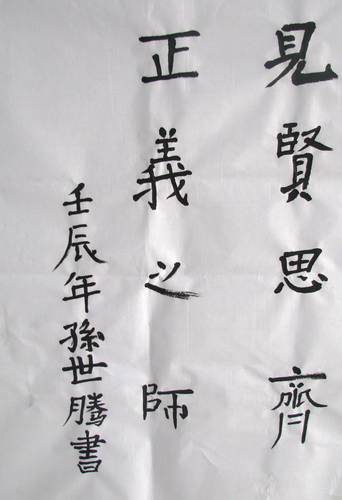 見賢思齊
正義之師
壬辰年孫世騰書